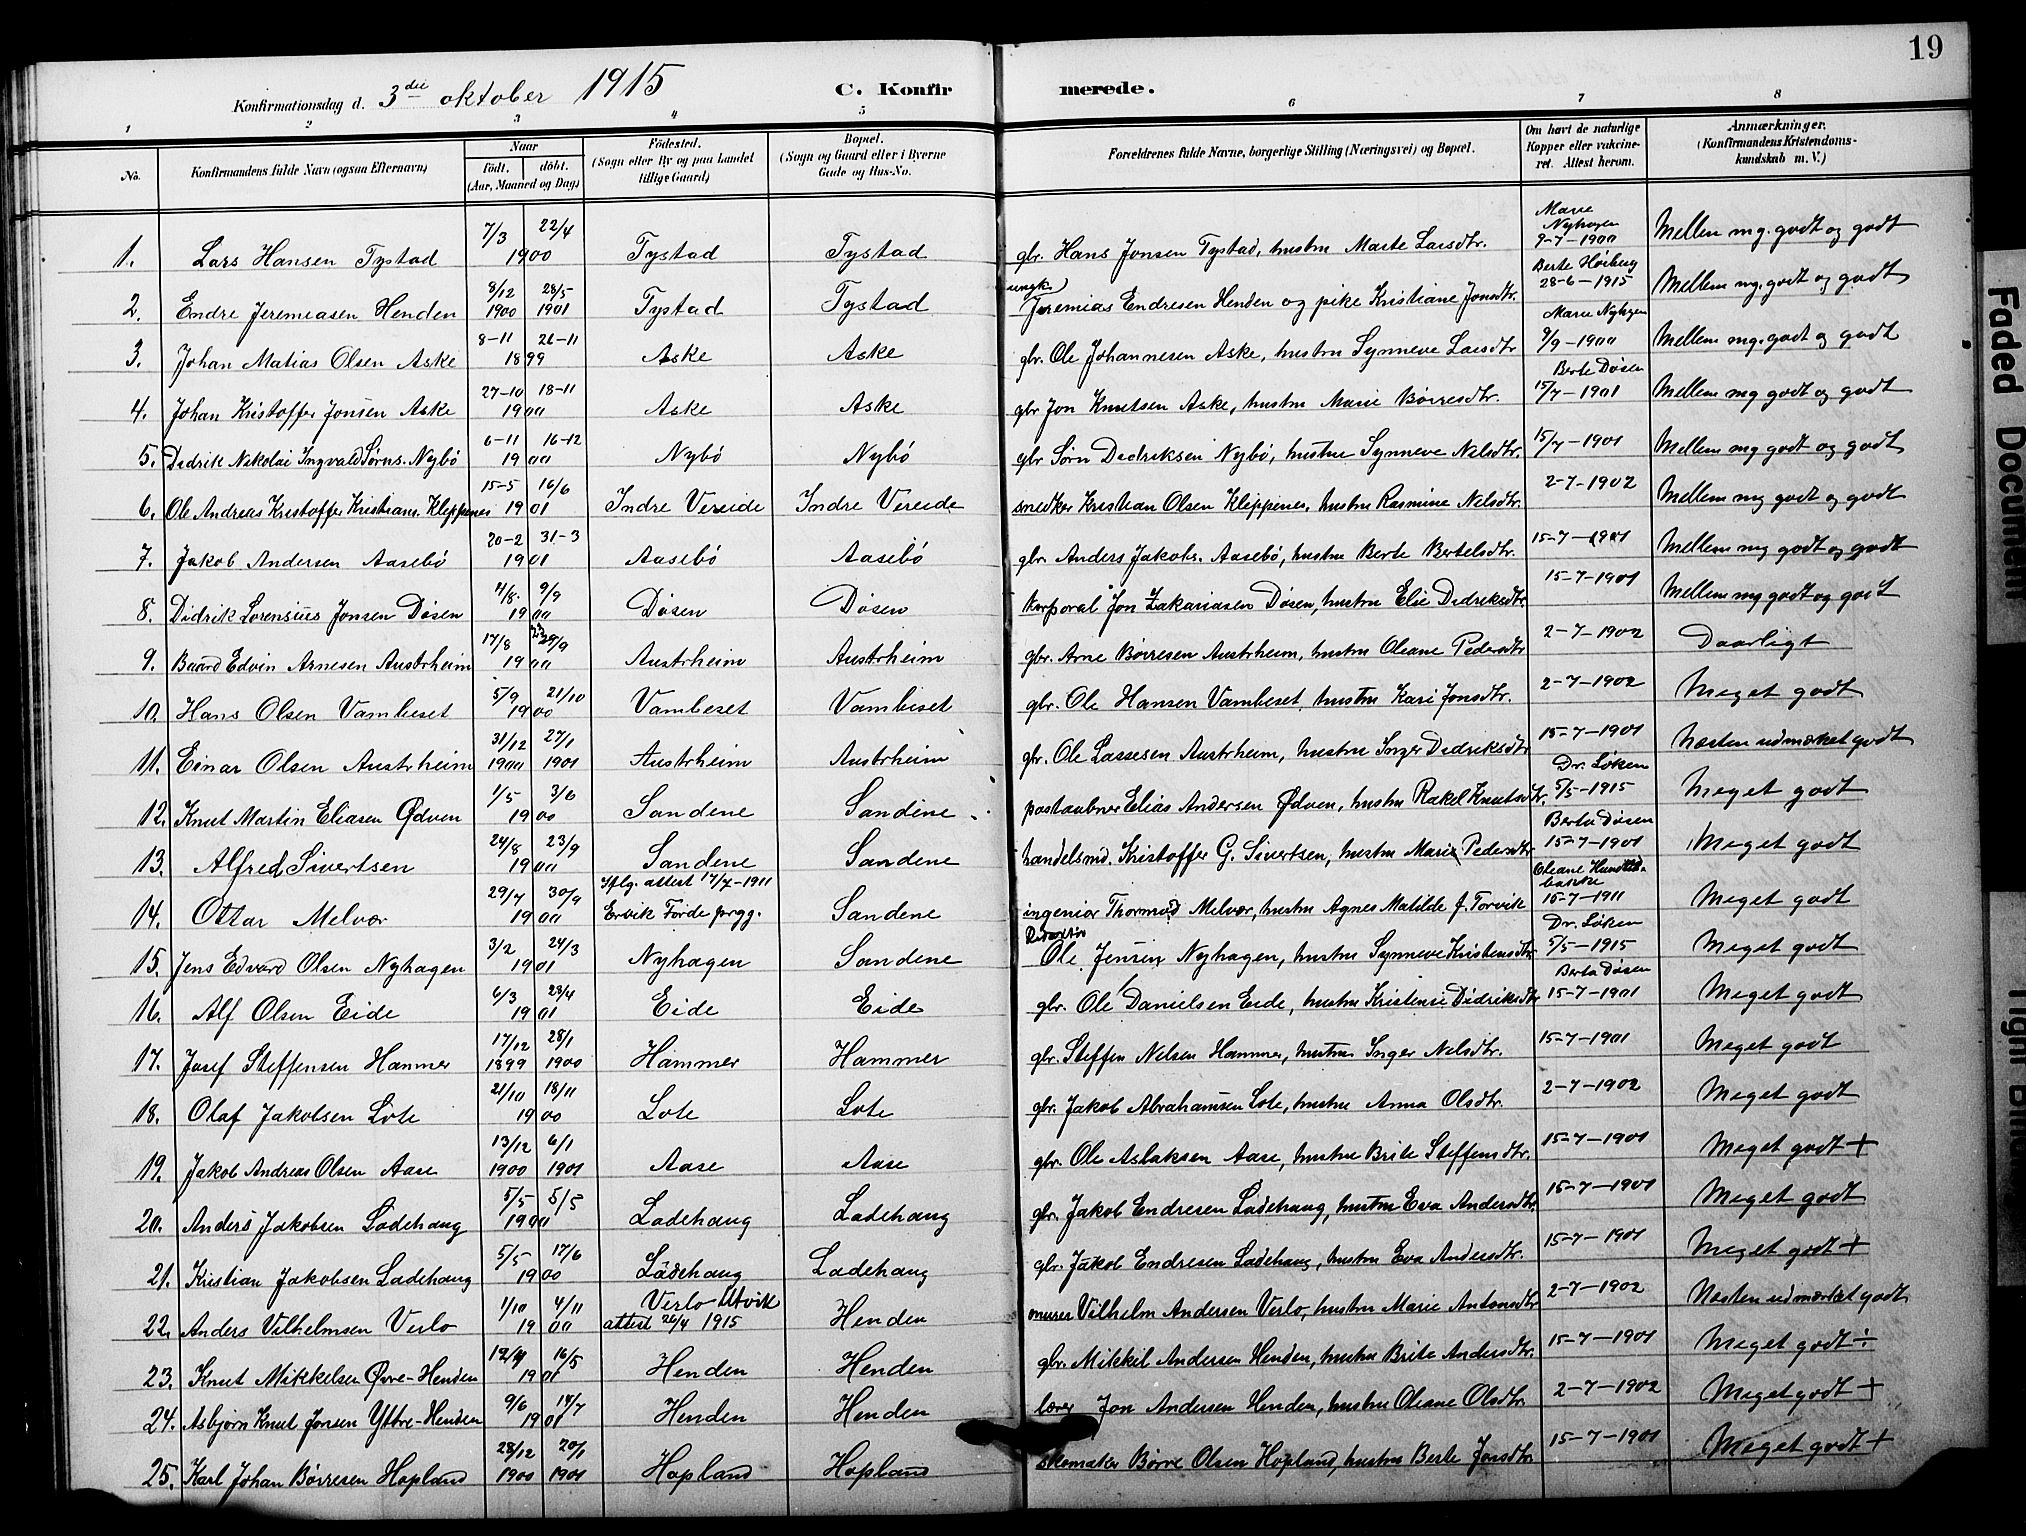 19
Konfirmationsdag d. 3die oktober 1915 C. Konfirmerede.
1 2 3 4 5 6 7 8
No. Konfirmandens fulde Navn (ogsaa Efternavn) Naar født. døbt. (Aar, Maaned og Dag) Fødested. (Sogn eller By og paa Landet tillige Gaard) Bopæl. (Sogn og Gaard eller i Byerne Gade og Hus-No. Forældrenes fulde Navne, borgerlige Stilling (Næringsvei) og Bopæl. Om havt de naturlige Kopper eller vakcineret. Attest herom. Anmærkninger. (Konfirmandens Kristendomskundskab m. V.)
1. Lars Hansen Tystad 7/3 22/4 1900 Tystad Tystad gbr. Hans Jonsen Tystad, hustru Marte Larsdtr. Marie Nyhagen 9-7-1900 Mellem mg. godt og godt
2. Endre Jeremiasen Henden 8/12 1900 28/5 1901 Tystad Tystad ungk. Jeremias Endresen Henden og pike Kristiane Jonsdtr. Berte Høiberg 28-6-1915 Mellem mg. godt og godt
3. Johan Matias Olsen Aske 8-11 26-11 1899 Aske Aske gbr. Ole Johannesen Aske, hustru Synneve Larsdtr Marie Nyhagen 9/9-1900 Mellem mg. godt og godt
4. Johan Kristoffer Jonsen Aske 27-10 18-11 1900 Aske Aske gbr Jon Knutsen Aske, hustru Marie Børresdtr. Berte Døsen 15/7-1901 Mellem mg godt og godt
5. Didrik Nikolai Ingvald Sørns. Nybø 6-11 16-12 1900 Nybø Nybø gbr Sørn Dedriksen Nybø, hustru Synneve Nilsdtr. 15/7-1901 Mellem mg godt og godt
6. Ole Andreas Kristoffer Kristians. Kleppenes 15-5 16/6 1901 Indre Vereide Indre Vereide snedker Kristian Olsen Kleppenes, hustru Rasmine Nilsdtr. 2-7-1902 Mellem mg godt og godt
7. Jakob Andersen Aasebø 20-2 31-3 1901 Aasebø Aasebø gbr. Anders Jakobs. Aasebø, hustru Berte Bertelsdtr. 15-7-1901 Mellem mg godt og godt
8. Didrik Lorensius Jonsen Døsen 4/8. 9/9 1900 Døsen Døsen korporal Jon Zakariasen Døsen, hustru Elie Didriksdtr. 15-7-1901 Mellem mg godt og godt
9. Baard Edvin Arnesen Austrheim 17/8 23/9 1900 Austrheim Austrheim gbr. Arne Børresen Austrheim, hustru Oleane Pedersdtr 2-7-1902 Daarligt
10. Hans Olsen Vambeset 5/9 21/10 1900 Vambeset Vambeset gbr. Ole Hansen Vambeset, hustru Kari Jonsdtr. 2-7-1902 Meget godt
11. Einar Olsen Austrheim 31/12 1900 27/1 1901 Austrheim Austrheim gbr. Ole Lassesen Austrheim, hustru Inger Didriksdtr 15-7-1901 Næsten udmærket godt
12. Knut Martin Eliasen Ødven 1/5 3/6 1900 Sandene Sandene postaabner Elias Andersen Ødven, hustru Rakel Knutsdtr. Dr. Løken 5/5-1915 Meget godt
13. Alfred Sivertsen 24/8 23/9 1900 Sandene Sandene handelsmd. Kristoffer G. Sivertsen, hustru Marie Pedersdtr Berta Døsen 15-7-1901 Meget godt
14. Ottar Melvær 29/7 30/9 1900 Iflg. attest 17/7-1911 Ervik Førde prgj. Sandene ingeniør Thormod Melvær, hustru Agnes Matilde f. Torvik Oleane 15-7-1911 Meget godt
15. Jens Edvard Olsen Nyhagen 3/2 24/3 1901 Nyhagen Sandene Ole Jensen Nyhagen, hustru Synneve Kristensdtr Dr. Løken 5/5-1915 Meget godt
16. Alf Olsen Eide 6/3 23/4 1901 Eide Eide gbr. Ole Danielsen Eide, hustru Kristensie Didriksdtr Berta Døsen 15-7-1901 Meget godt
17. Josef Steffensen Hammer 17/12 1899 28/1 1900 Hammer Hammer gbr. Steffen Nilsen Hammer, hustru Inger Nilsdtr. 15-7-1901 Meget godt
18. Olaf Jakobsen Lote 21/10 18/11 1900 Lote Lote gbr. Jakob Abrahamsen Lote, hustru Anna Olsdtr. 2-7-1902 Meget godt
19. Jakob Andreas Olsen Aase 13/12 1900 6/1 1901 Aase Aase gbr. Ole Aslaksen Aase, hustru Brite Steffensdtr. 15-7-1901 Meget godt +
20. Anders Jakobsen Ladehaug 5/5 5/5 1900 Ladehaug Ladehaug gbr. Jakob Endresen Ladehaug, hustru Eva Andersdtr. 15-7-1901 Meget godt
21. Kristian Jakobsen Ladehaug 5/5 17/6 1900 Ladehaug Ladehaug gbr. Jakob Endresen Ladehaug, hustru Eva Andersdtr. 15-7-1901 Meget godt +
22. Anders Vilhelmsen Verlo 1/10 4/11 1900 Verlo Utvik attest 26/4 1915 Henden murer Vilhelm Andersen Verlo, hustru Marie Antonsdtr 2-7-1902 Næsten udmærket godt
23. Knut Mikkelsen Øvre-Henden 12/4 16/5 1901 Henden Henden gbr. Mikkel Andersen Henden, hustru Brite Andersdtr. 15-7-1901 Meget godt ÷
24. Asbjørn Knut Jonsen Ytre-Henden 9/6 14/7 1901 Henden Henden lærer Jon Andersen Henden, hustru Oleane Olsdtr. 2-7-1902 Meget godt +
25. Karl Johan Børresen Hopland 28/12 1900 20/1 1901 Hopland Hopland skomaker Børre Olsen Hopland, hustru Berte Jonsdtr 15-7-1901 Meget godt +
Faded Document
Tight